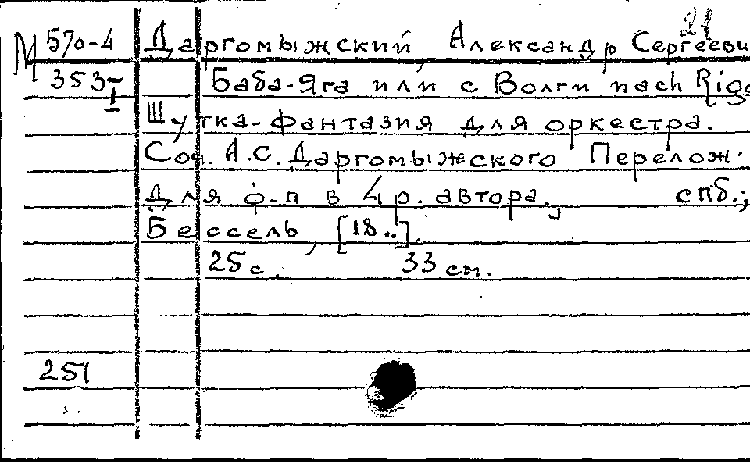 21
М 570-4 Даргомыжский, Александр Сергееви
353-I Баба-Яга или с Волги nach Riga
Шутка-фантазия для оркестра.
Соч. А.С. Даргомыжского Перелож.
для ф-п в 4 р. автора. спб.,
Бессель, [18..].
25 с. 33 см.
251